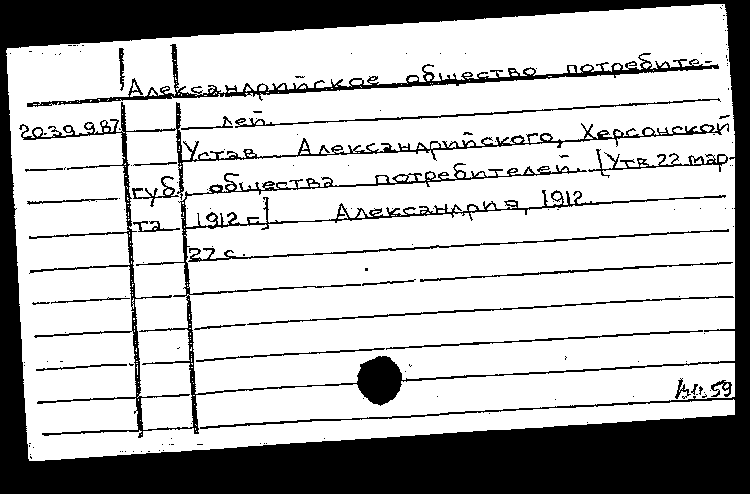 Александрийское общество потребите-
лей.
20.39.9.87
Устав Александрийского, Херсонской
губ., общества потребителей. [Утв. 22 мар-
та 1912 г.]. Александрия, 1912.
27 с.
59